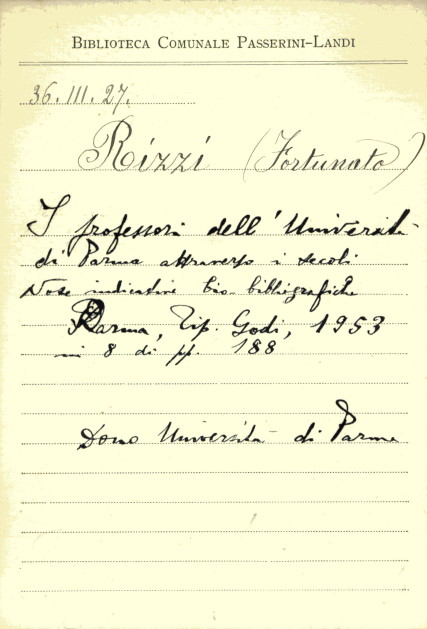 BIBLIOTECA COMUNALE PASSERINI-LANDI
36. III. 27.
Rizzi (Fortunato)
I professori dell'Università
di Parma attraverso i secoli
Note indicative bio-bibligrafiche
Parma, Tip. Godi, 1953
in 8 di pp. 188
Dono Università di Parma